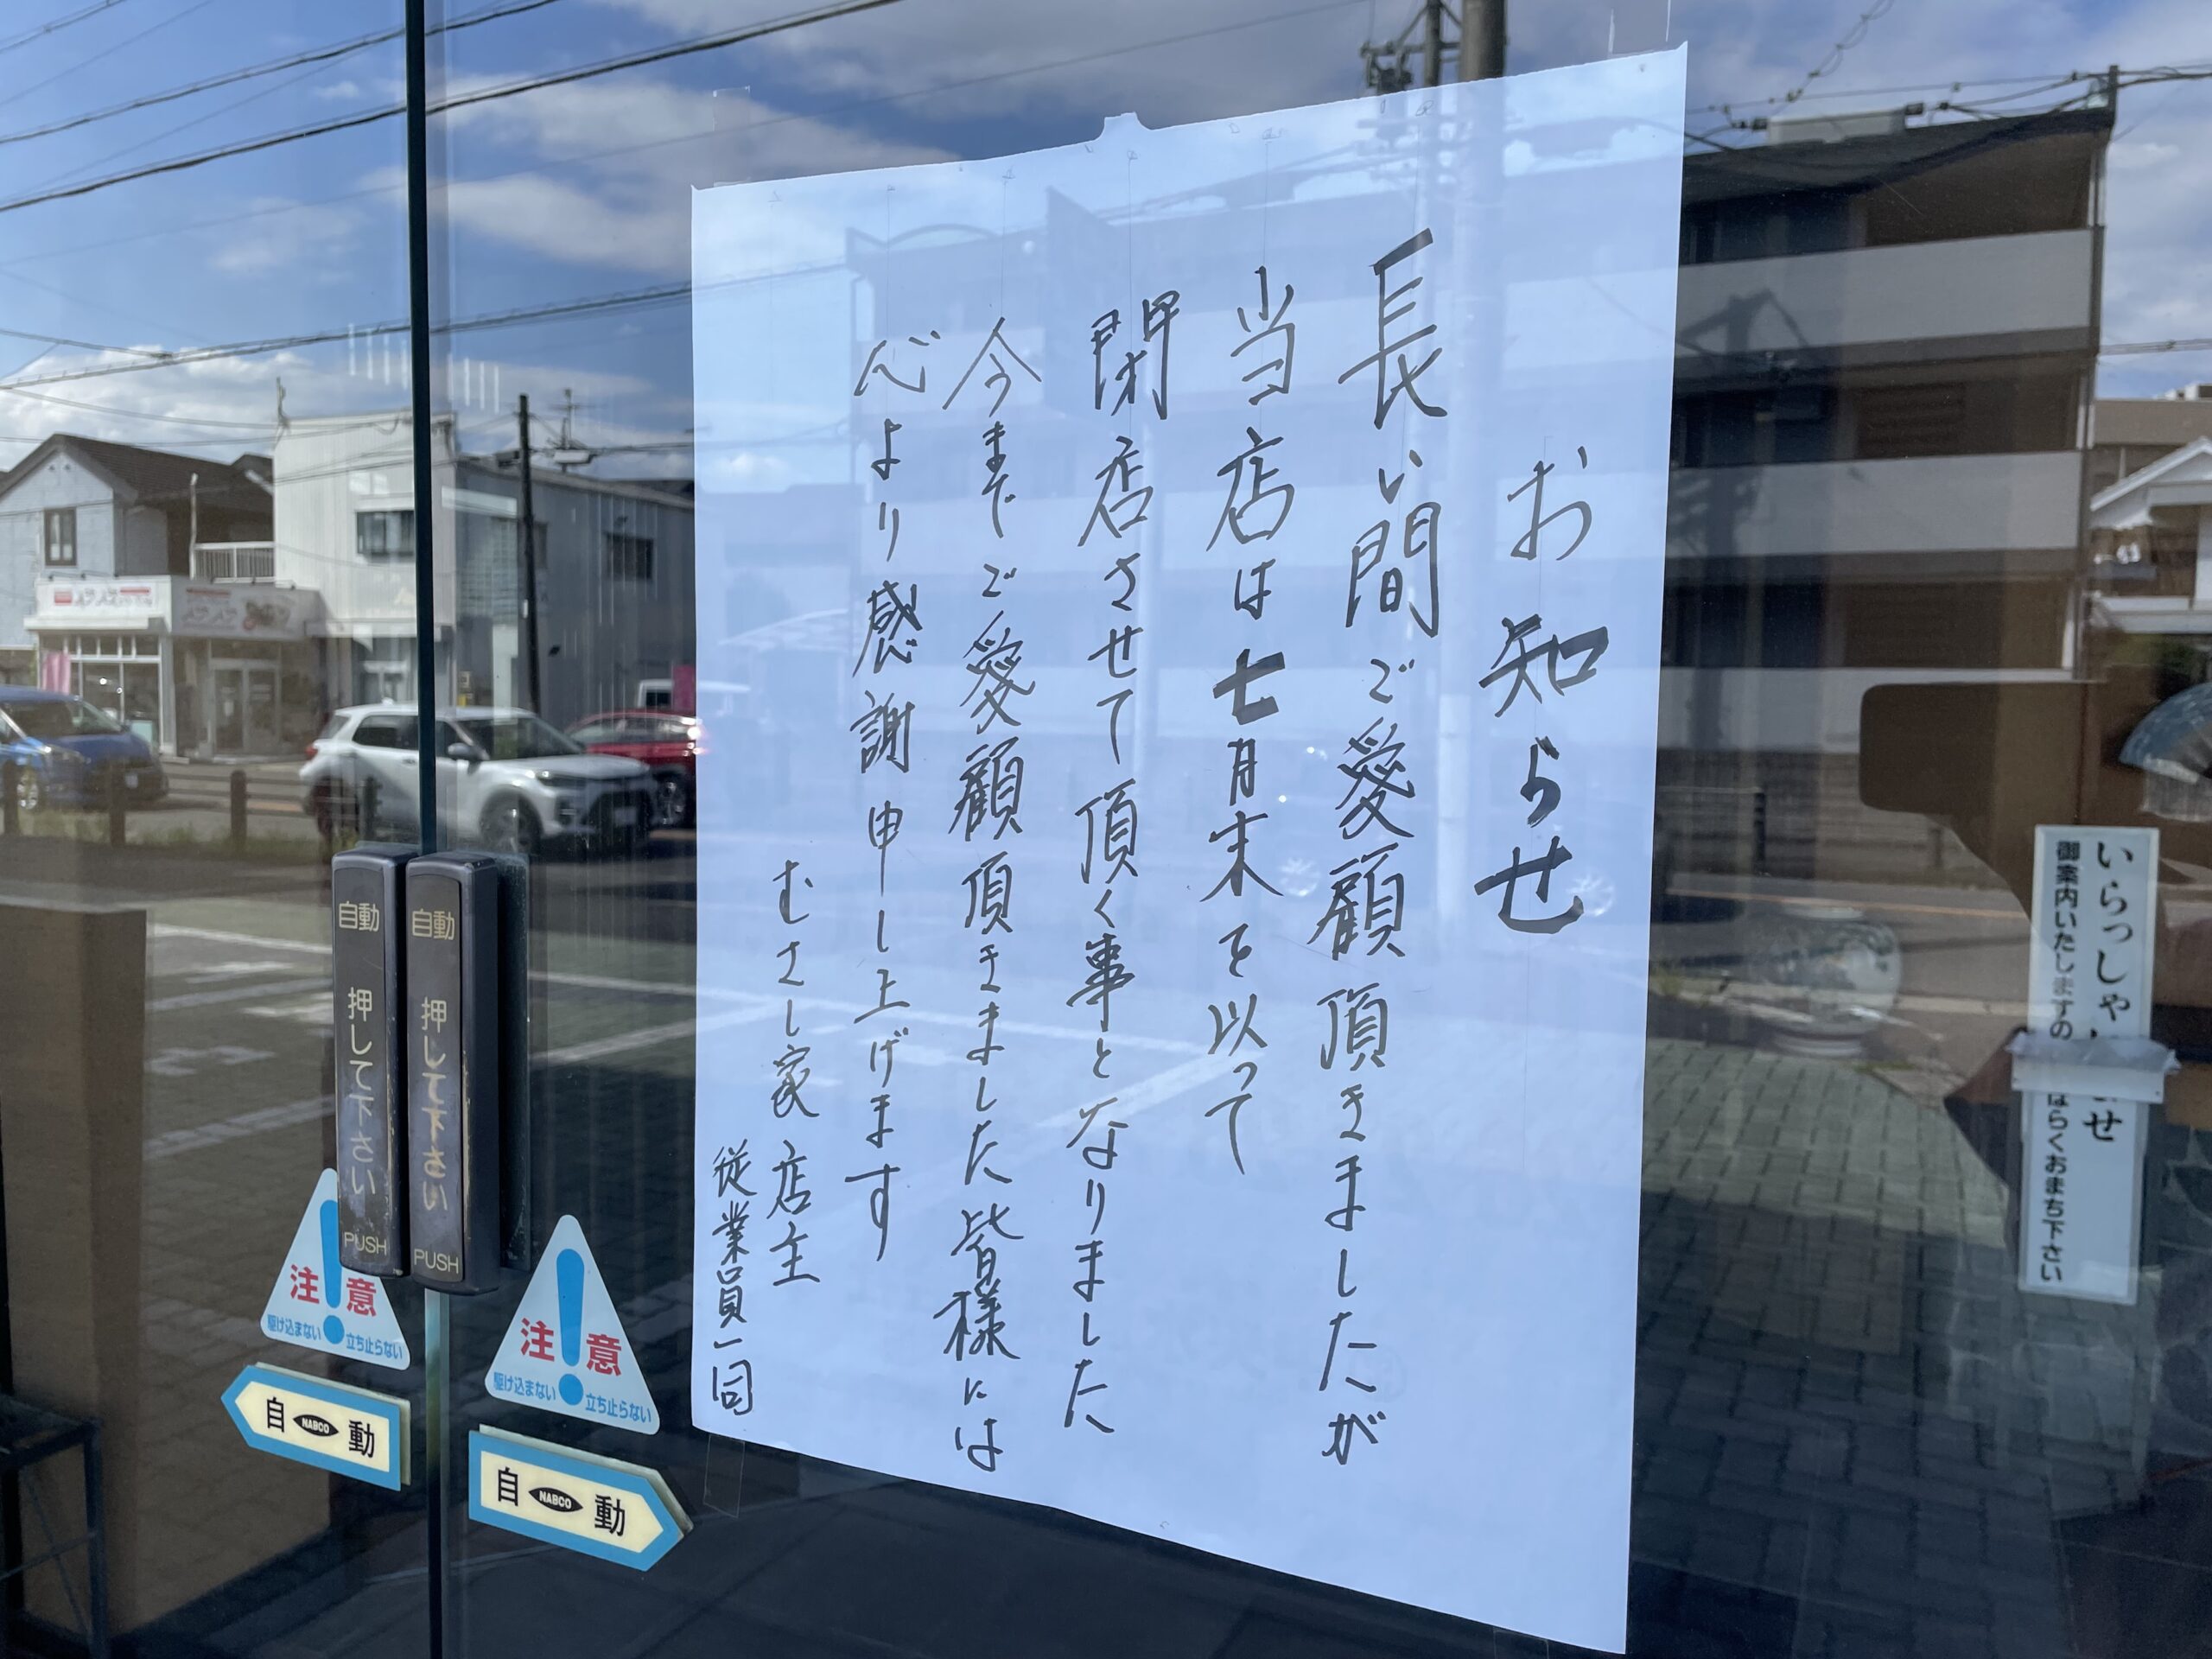 お知らせ
長い間ご愛顧頂きましたが
当店は七月末を以って
閉店させて頂く事となりました
今までご愛顧頂きました皆様には
心より感謝申し上げます
むさし家 店主
従業員一同
自動 押して下さい PUSH
自動 押して下さい PUSH
注意
駆け込まない 立ち止らない
注意
駆け込まない 立ち止らない
自 NABCO 動
自 NABCO 動
いらっしゃ ませ
御案内いたしますの ばらくおまち下さい